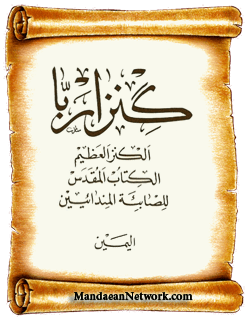 گنزا ربّا
الكنز العظيم
الكتاب المقدس
للصابئة المندائيين
اليمين
MandaeanNetwork.com